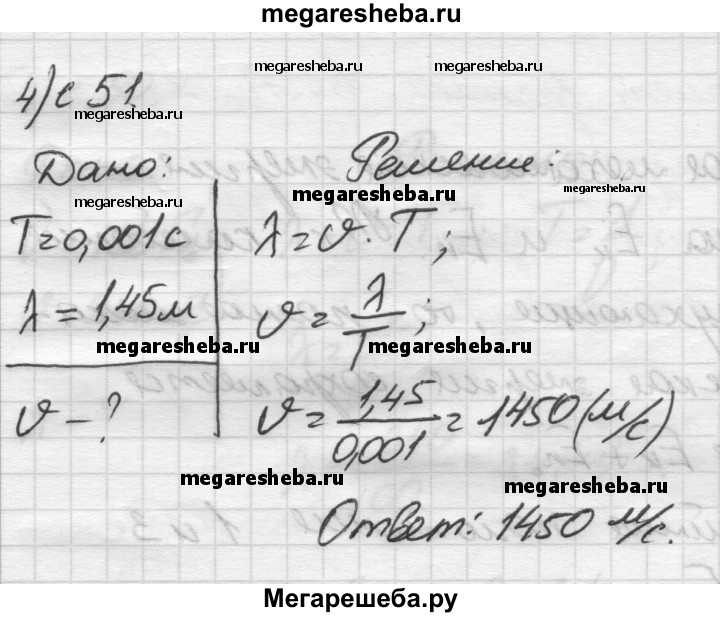 megaresheba.ru
megaresheba.ru megaresheba.ru
4) с 51.
megaresheba.ru
Дано: Решение:
megaresheba.ru
megaresheba.ru
megaresheba.ru
T = 0,001 с λ = υ · T;
λ = 1,45 м υ = λ/T;
megaresheba.ru megaresheba.ru
υ - ? υ = 1,45/0,001 = 1450 (м/с)
megaresheba.ru megaresheba.ru
Ответ: 1450 м/с.
Мегарешеба.ру